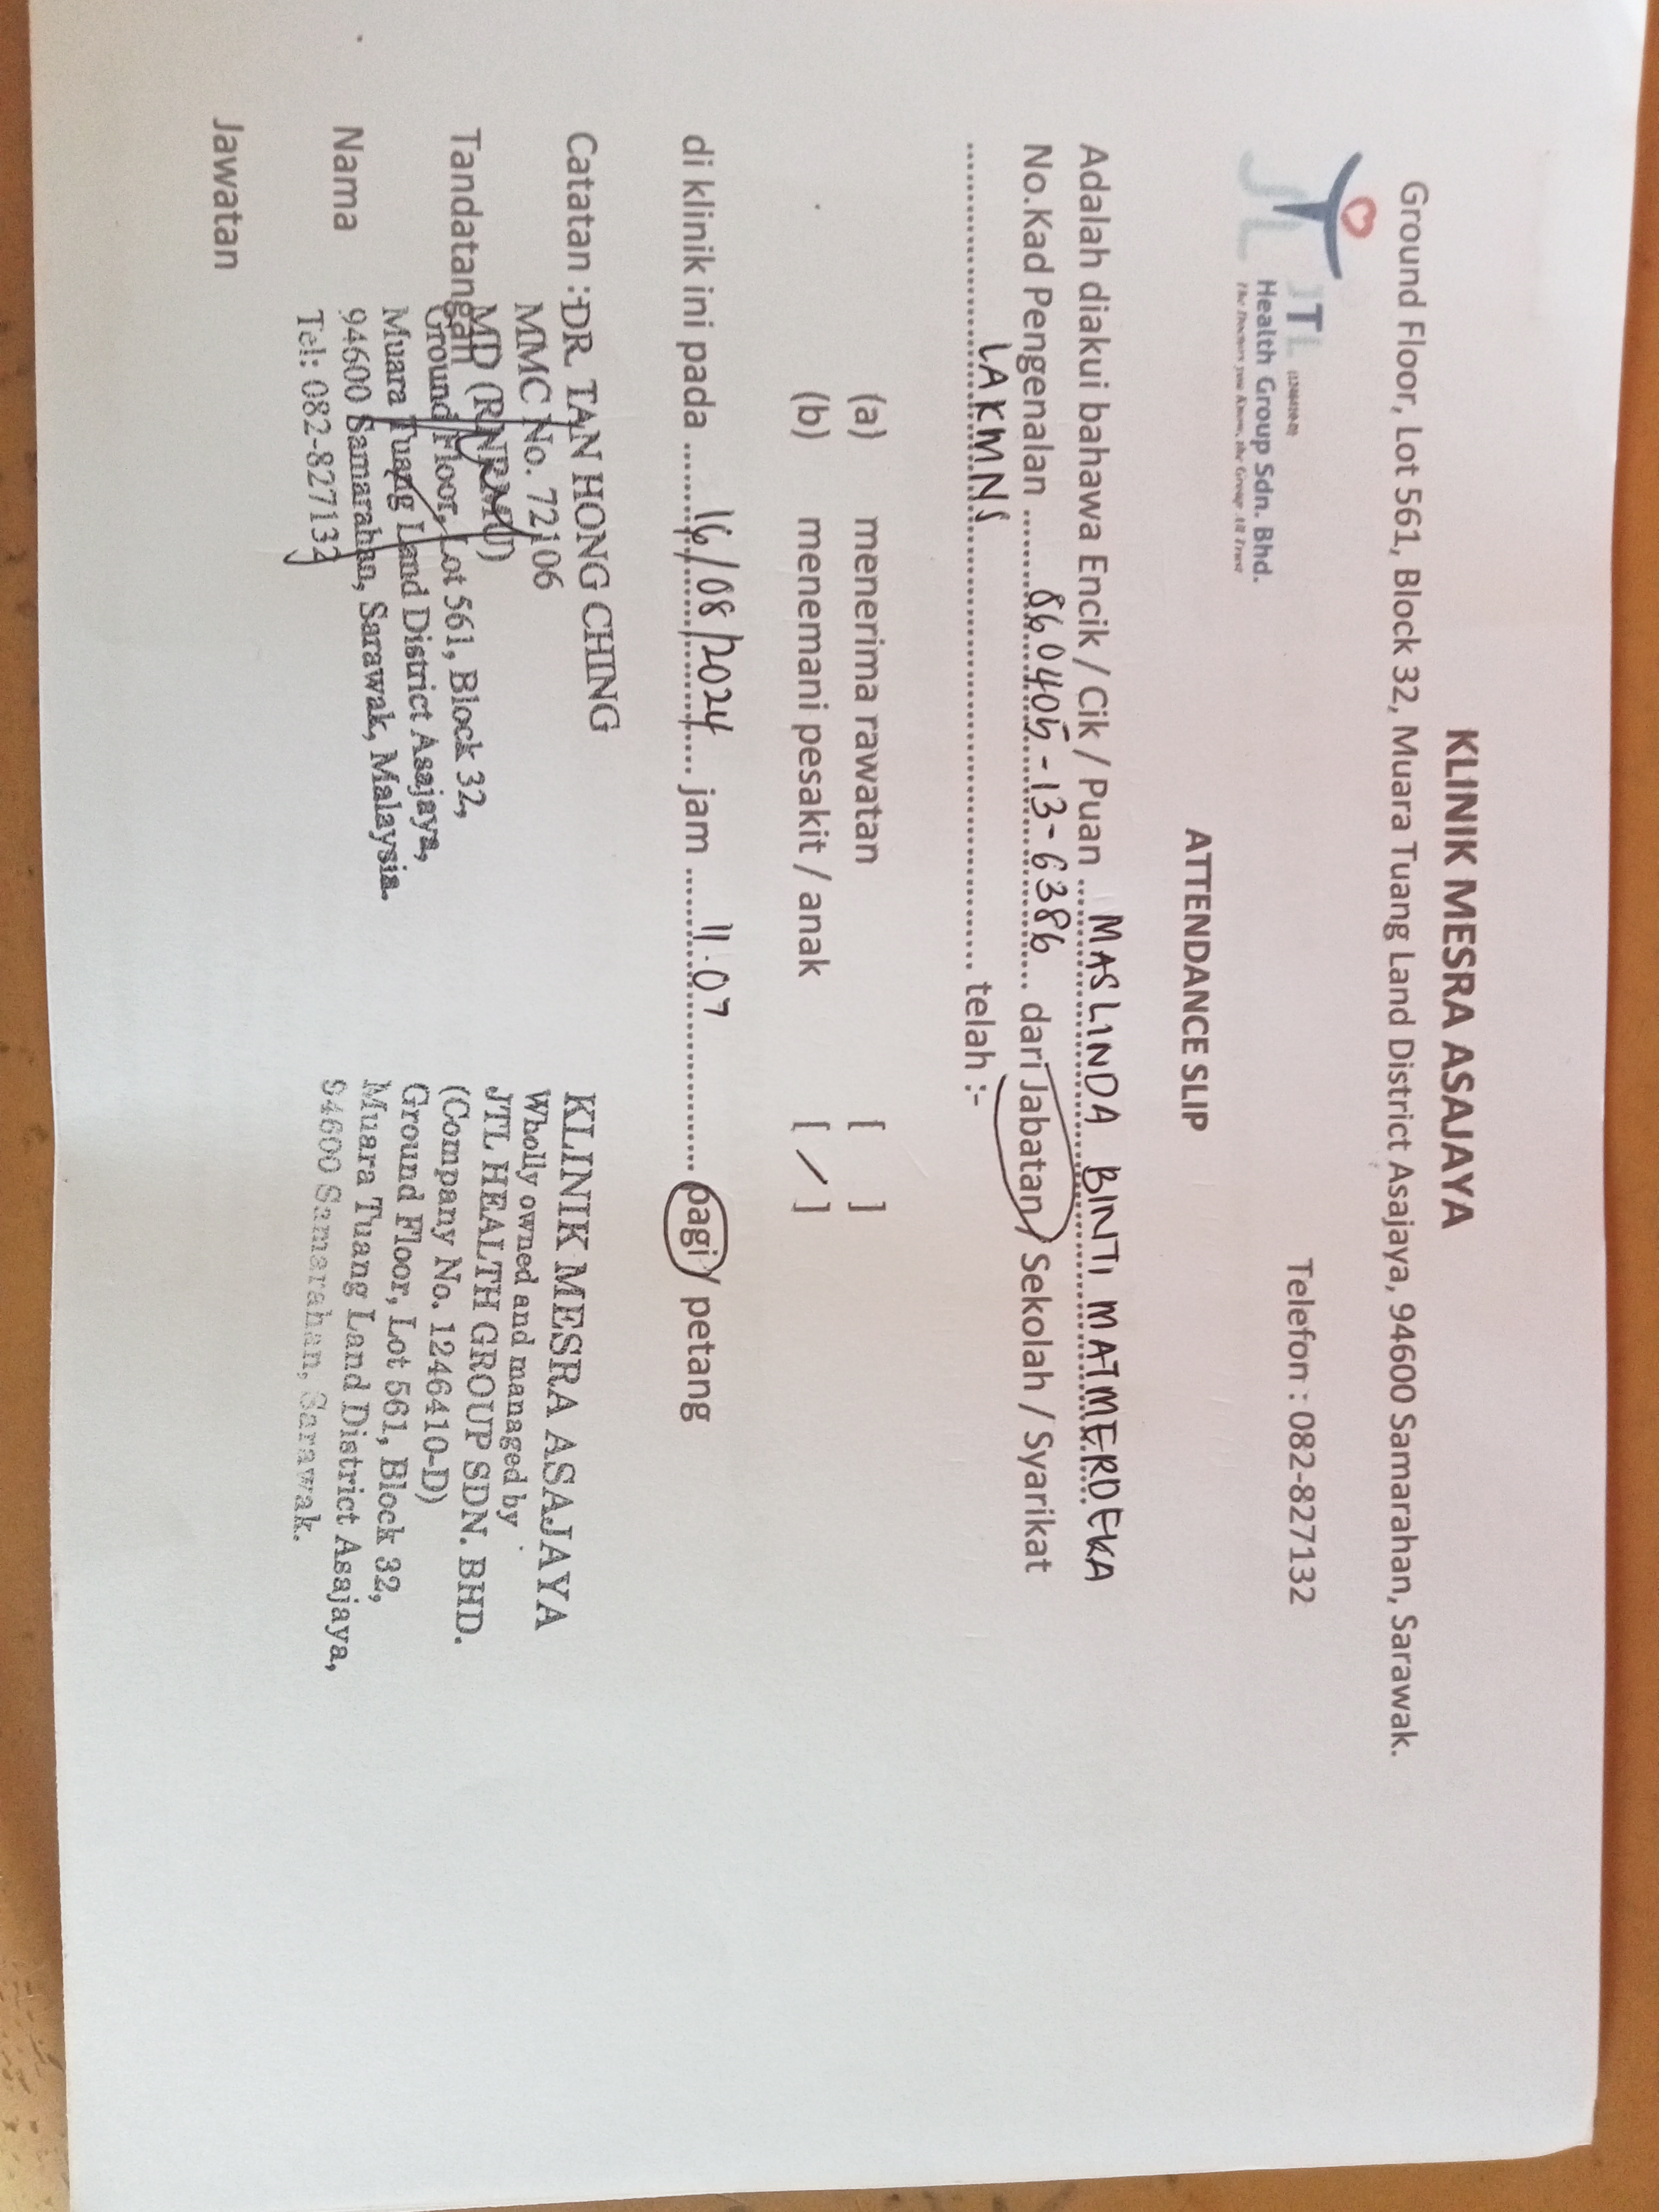 KLINIK MESRA ASAJAYA
Ground Floor, Lot 561, Block 32, Muara Tuang Land District Asajaya, 94600 Samarahan, Sarawak.
Telefon : 082-827132
JTL
Health Group Sdn. Bhd.
The Doctors you Know, the Group All Trust
ATTENDANCE SLIP
Adalah diakui bahawa Encik / Cik / Puan MASLINDA BINTI MATMERDEKA
No.Kad Pengenalan 860405-13-6386 dari Jabatan / Sekolah / Syarikat
LAKMNS telah :-
(a) menerima rawatan [ ]
(b) menemani pesakit / anak [ / ]
di klinik ini pada 16/08/2024 jam 11.07 pagi / petang
Catatan :
Tandatangan
Nama
Jawatan
DR. TAN HONG CHING
MMC No. 72106
MD (RNRMU)
Ground Floor, Lot 561, Block 32,
Muara Tuang Land District Asajaya,
94600 Samarahan, Sarawak, Malaysia.
Tel: 082-827132
KLINIK MESRA ASAJAYA
Wholly owned and managed by
JTL HEALTH GROUP SDN. BHD.
(Company No. 1246410-D)
Ground Floor, Lot 561, Block 32,
Muara Tuang Land District Asajaya,
94600 Samarahan, Sarawak.